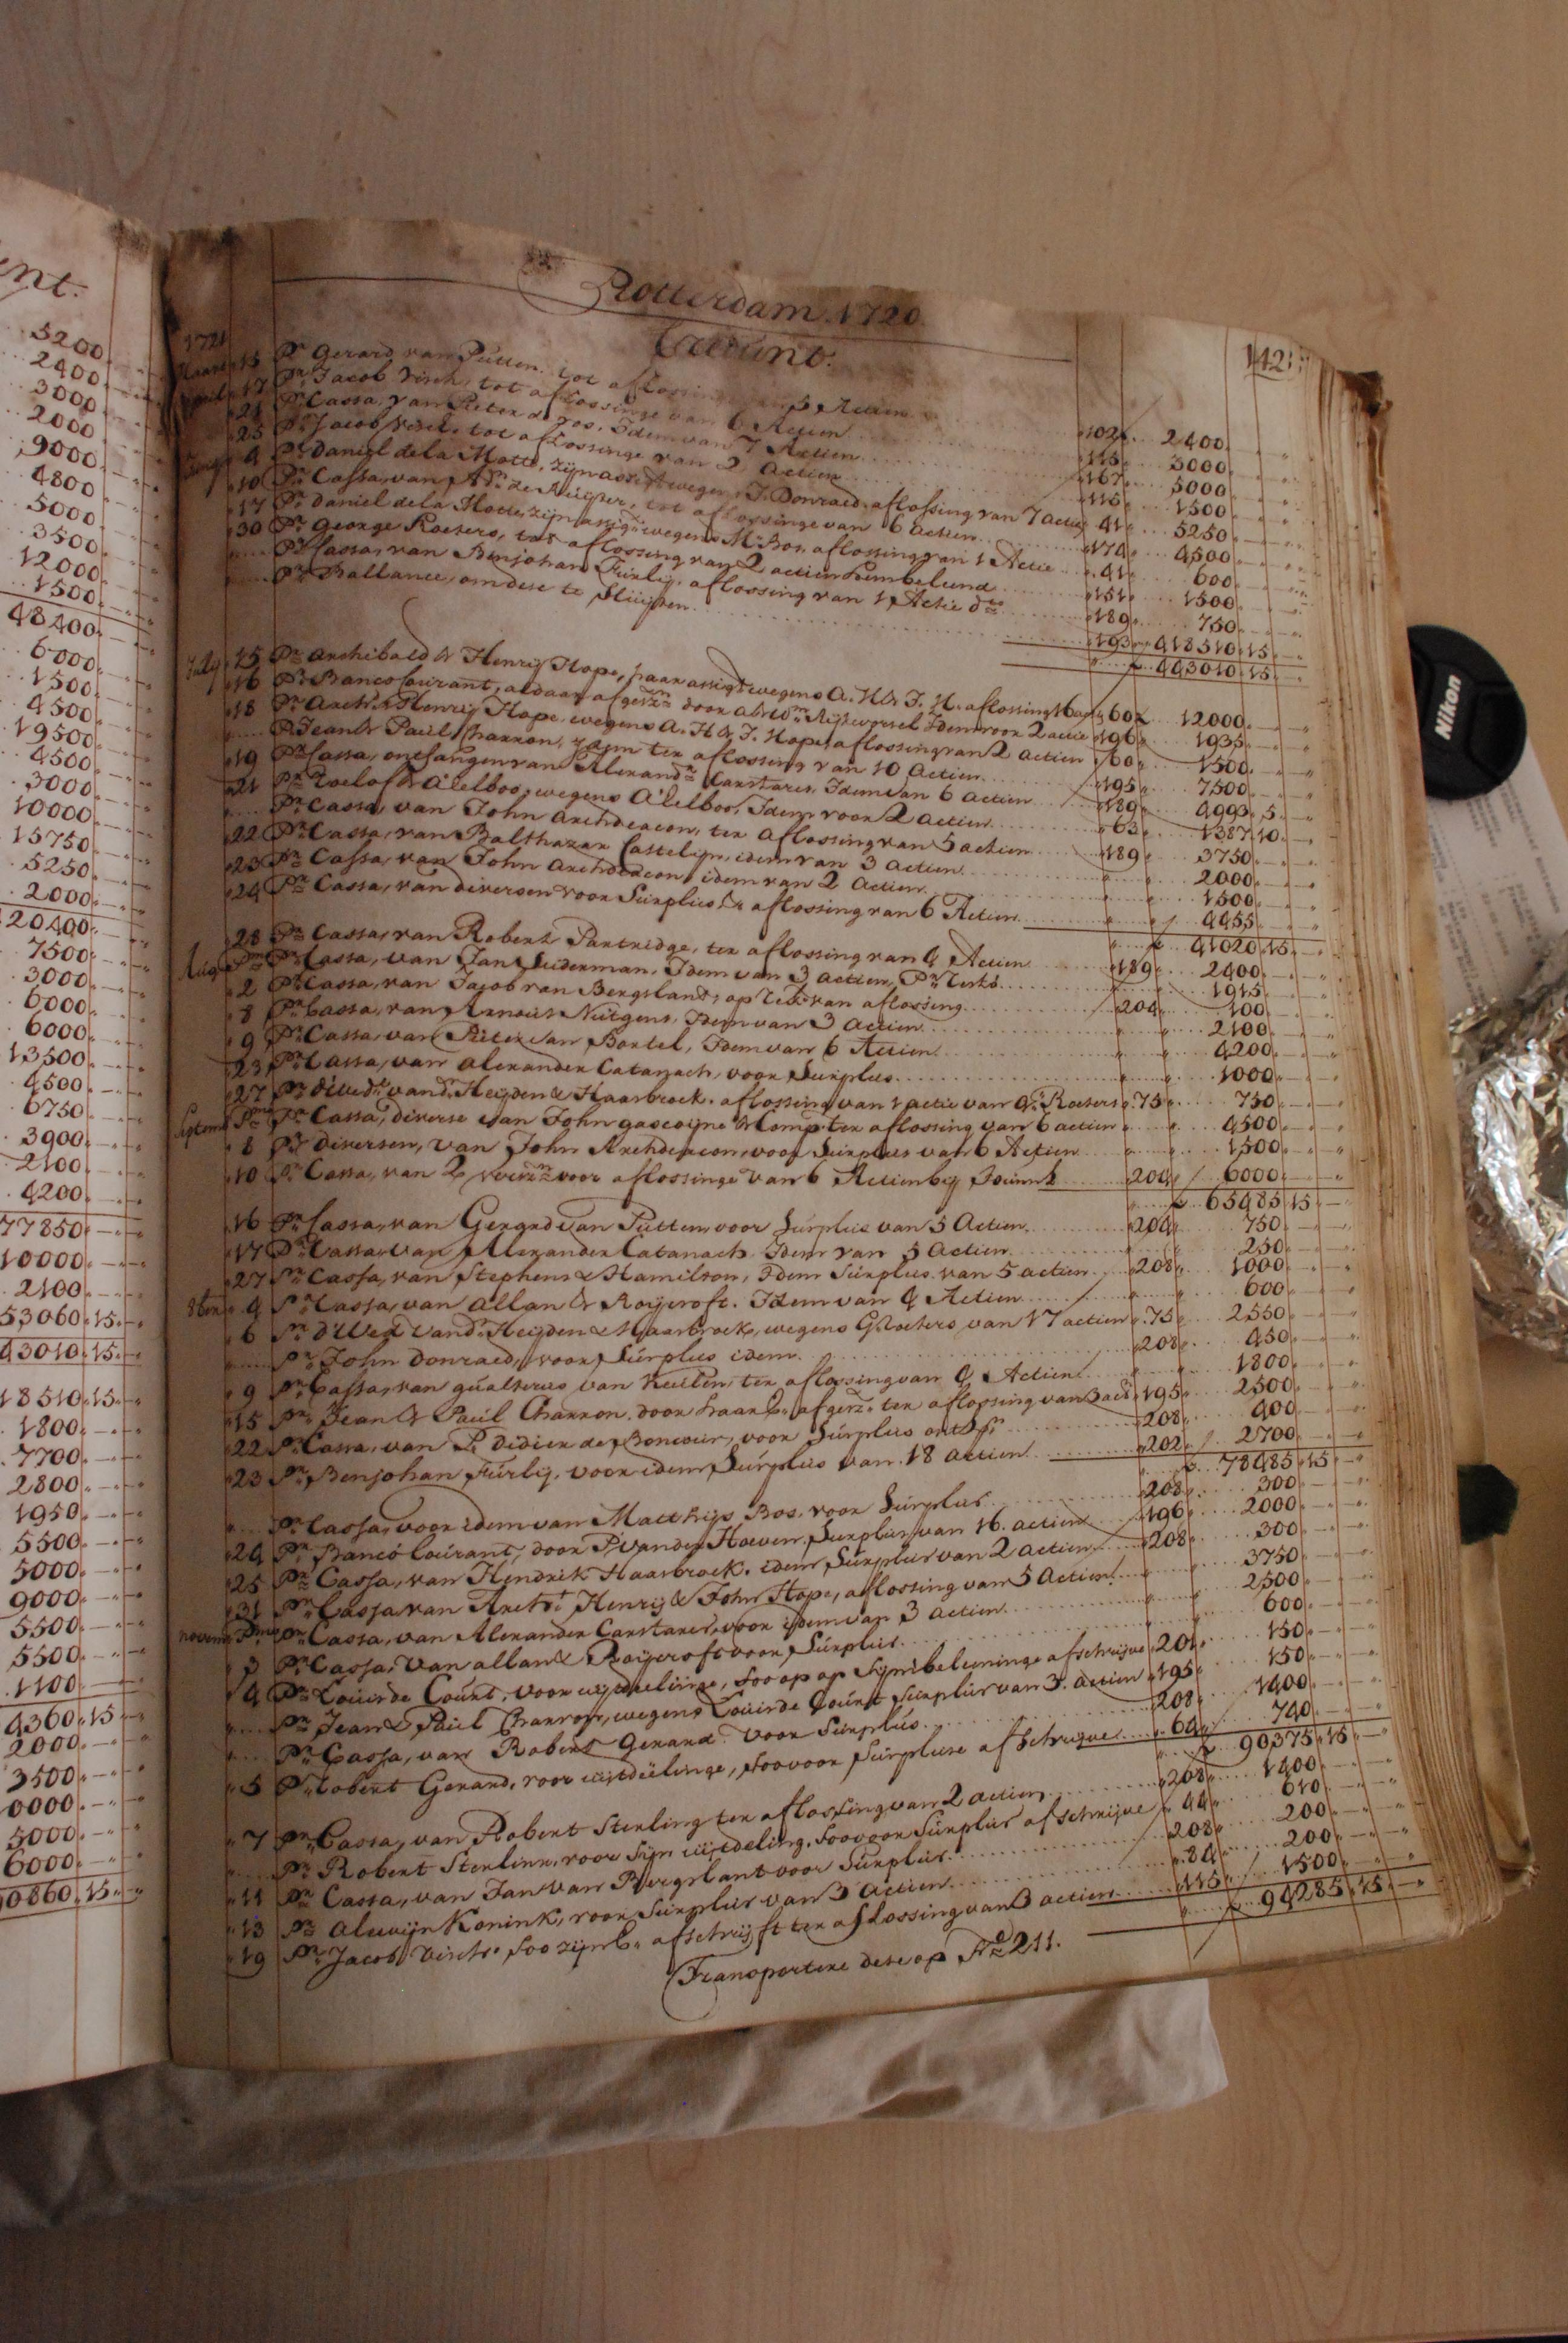 ent.
5200
2400
3000
2000
9000
4800
5000
3500
12000
1500
48400
6000
1500
4500
19500
4500
3000
10000
15750
5250
2000
20400
7500
3000
6000
6000
13500
4500
6750
3900
2100
4200
77850
10000
2100
53060 15
43010 15
18510 15
1800
7700
2800
1950
5500
5000
9000
5500
5500
1100
4360 15
2000
3500
0000
5000
6000
90860 15
Rotterdam 1720
Credint.
142
1721
Maart 15 Pr Gerard van Putten tot aflossinge van 3 Actien 102 2400
April 17 Pr Jacob Visch, tot aflossinge van 6 Actien 115 3000
21 Pr Cassa, van Pieter de Vos, Idem van 7 Actien 167 5000
25 Pr Jacob Visch, tot aflossinge van 2 Actien 115 1500
4 Pr Daniel dela Motte, zijn assig.t wegen J. Donraed, aflossing van 7 actien 41 5250
10 Pr Cassa, van A. de Ruijter, tot aflossinge van 6 actien 174 4500
17 Pr Daniel dela Motte, zijn assig. wegens M. Bos, aflossing van 1 Actie 41 600
30 Pr George Roeters, tot aflossing van 2 actien 151 1500
Pr Cassa, van Benjohan Fúrlij, aflossing van 1 Actie 189 750
Pr Ballance, om dese te Sluijten 193 418510 15
443010 15
July 15 Pr Archibald & Henrij Hope, haar assig.t wegens A. H. & J. H. aflossing 16 60 12000
16 Pr Banco Courant, aldaar door Idem voor 2 actie 196 1935
18 Pr Arch. & Henrij Hope, wegens A. H & J. Hope, aflossing van 2 actien 60 1500
Pr Jean & Paúl Charron, ter aflossing van 10 Actien 195 7500
19 Pr Cassa, ontfangen van Alexand. Carstares, Idem van 6 actien 189 4993 5
21 Pr Roelof & A'lelboo, wegens A'lelboo, Idem voor 2 actien 63 1387 10
Pr Cassa, van John Archdeacon, ter aflossing van 5 actien 189 3750
22 Pr Cassa, van Balthazar Castelijn, idem van 3 actien 2000
23 Pr Cassa, van John Archdeacon, idem van 2 actien 1500
24 Pr Cassa, van diversen voor Súrplús & aflossing van 6 Actien 4455
41020 15
28 Pr Cassa, van Robert Partridge, ter aflossing van 4 Actien 189 2400
Aúg Pmo Pr Cassa, van Jan Súderman, Idem van 3 actien 1915
2 Pr Cassa, van Jacob van Bergsland, op aflossing 204 100
8 Pr Cassa, van Arnoút Nútgens, Idem van 3 actien 2100
9 Pr Cassa, van Pieter van Bortel, Idem van 6 Actien 4200
23 Pr Cassa, van Alexander Catanach, voor Súrplús 1000
27 Pr d'Wed. vand. Heijden & Haasbroek, aflossing van 1 actie van G. Roeters 75 750
Septem Pmo Pr Cassa, diverse van John Gascoijne & Comp. ter aflossing van 6 actien 4500
8 Pr diversen, van John Archdeacon, voor Súrplús van 6 Actien 1500
10 Pr Cassa, van 2 voor aflossinge van 6 Actien bij 204 6000
65485 15
16 Pr Cassa, van Gerard van Pútten, voor Súrplús van 3 Actien 204 750
17 Pr Cassa, van Alexander Catanach Idem van 5 Actien 250
27 Pr Cassa, van Stephens & Hamilson, Idem Súrplús van 5 actien 208 1000
8ber 4 Pr Cassa, van Allan & Roijcroft. Idem van 4 Actien 600
6 Pr d'Wed. Vand. Heijden & Haasbroek, wegens G. Roeters van 17 actien 75 2550
Pr John Donraed, voor Súrplús idem 208 450
9 Pr Cassa, van Gualterus van Keulen, ter aflossing van 4 Actien 1800
15 Pr Jean & Paúl Charron, door haar afgesz. ter aflossing van 3 act 195 2500
22 Pr Cassa, van P. Didier de Boncour, voor Súrplús 208 400
23 Pr Benjohan Fúrlij, voor idem Súrplús van 18 actien 202 2700
78485 15
Pr Cassa, voor idem van Matthijs Bos, voor Súrplús 208 300
24 Pr Banco Coúrant, door P. vander Hoeven, Súrplús van 16 actien 196 2000
25 Pr Cassa, van Hendrik Haasbroek, idem Súrplús van 2 actien 208 300
31 Pr Cassa van Arch. Henrij & John Hope, aflossing van 5 Actien 3750
novem Pmo Pr Cassa, van Alexander Carstares, voor idem van 3 actien 2500
3 Pr Cassa, van Allan & Roijcroft voor Súrplús 600
4 Pr Louis de Coúrt, voor uijtdeelinge, soo op afschrijve 201 150
Pr Jean & Paúl Charron, wegens Louis de Coúrt Súrplús van 3 actien 195 150
Pr Cassa, van Robert Gerard voor Súrplús 208 1400
5 Pr Robert Gerard, voor uijtdeelinge, soo voor Súrpluse afschrijve 64 740
90375 15
7 Pr Cassa, van Robert Sterling ter aflossing van 2 actien 208 1400
Pr Robert Sterling, voor sijn uijtdeling, soo voor Súrplús afschrijve 44 610
11 Pr Cassa, van Jan van Bergslant voor Súrplús 208 200
13 Pr Alewijn Konink, voor Súrplús van 3 actien 84 200
19 Pr Jacob Visch, soo zijn afschrijft ter aflossing van 3 actien 115 1500
94285 15
Transportere dese op No 211.
Nikon